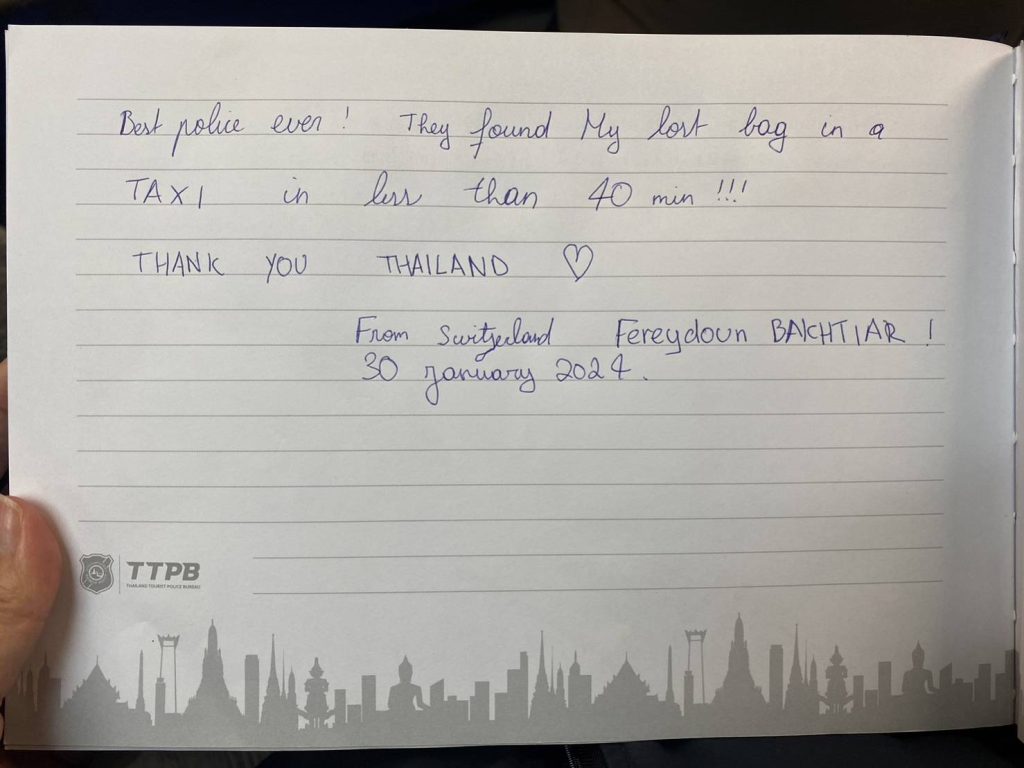 Best police ever! They found My lost bag in a
TAXI in less than 40 min !!!
THANK YOU THAILAND ♡
From Switzerland Fereydoun BAKHTIAR !
30 january 2024.
TTPB
THAILAND TOURIST POLICE BUREAU